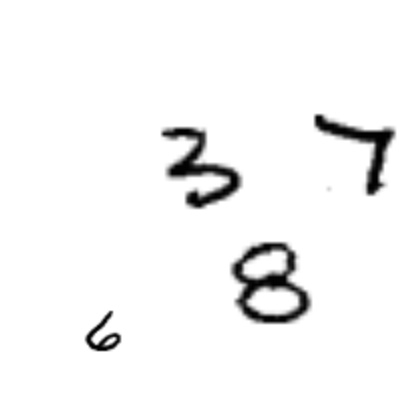 3 7
8
6